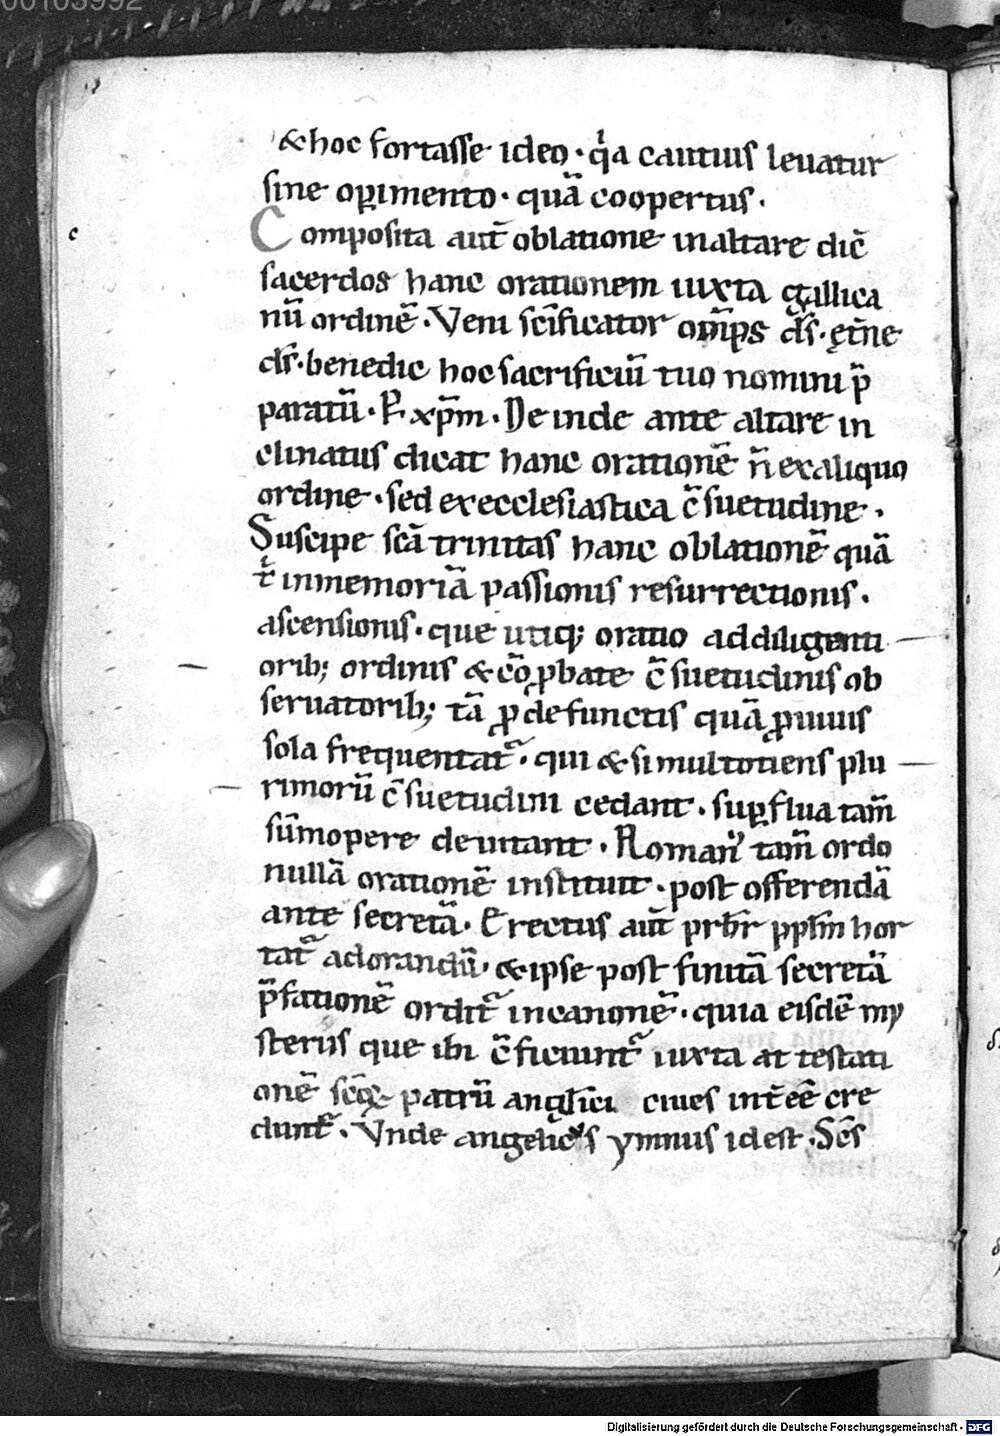 00103992
&hoc fortasse ideo · qͥa cautius leuatur
sine oꝑimento · quā coopertus .
c
Composita aut̄ oblatione inaltare dic̄
sacerdos hanc orationem iuxta gallica
nū ordinē . Veni sc̄ificator om̄ps ds̄ . ęt̄ne
ds̄ . benedic hoc sacrificiū tuo nomini p̄
paratū . P xp̄m . Deinde ante altare in
clinatus dicat hanc orationē n̄ exaliquo
ordine . sed execclesiastica c̄suetudine .
Suscipe sc̄a trinitas hanc oblationē quā
t̄ inmemoriā passionis resurrectionis .
ascensionis . que utiq; oratio addiligenti
orib; ordinis & cōꝓbate c̄suetudinis ob
seruatorib; tā ꝓ defunctis quā ꝓ uiuis
sola frequentat᷑ . qui & simultotiens plu
rimorū c̄suetudini cedant . suꝑflua tam̄
sūmopere deuitant . Roman᾽ tam̄ ordo
nullā orationē instituit . post offerendā
ante secretā . Erectus aut̄ prb̄r ppl̄m hor
tat᷑ adorandū . & ipse post finitā secretā
p̄fationē ordit᷑ incanonē . quia eisdē my
steriis que ibi c̄ficiunt᷑ iuxta attestati
onē sc̄oꝝ patrū anglici ciues int̄eē cre
dunt᷑ . Vnde angelicus ymnus idest . Sc̄s
Digitalisierung gefördert durch die Deutsche Forschungsgemeinschaft - DFG